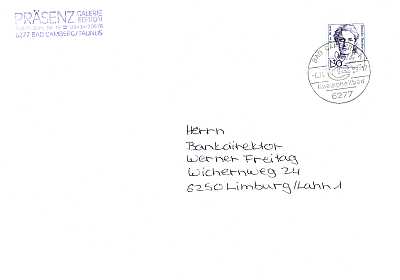 PRÄSENZ GALERIE
EDITION
6277 BAD CAMBERG/TAUNUS
130
BAD CAMBERG
6277
Herrn
Bankdirektor
Werner Freitag
Wichernweg 24
6250 Limburg/Lahn 1